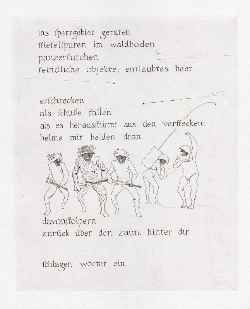 ins sperrgebiet geraten
stiefelspuren im waldboden
panzerfurchen
feindliche objekte, entlaubtes heer
erschrocken
als schüsse fallen
als es herausstürmt aus den verstecken
helme mit helden dran
davonstolpern
zurück über den zaun. hinter dir
schlagen wörter ein